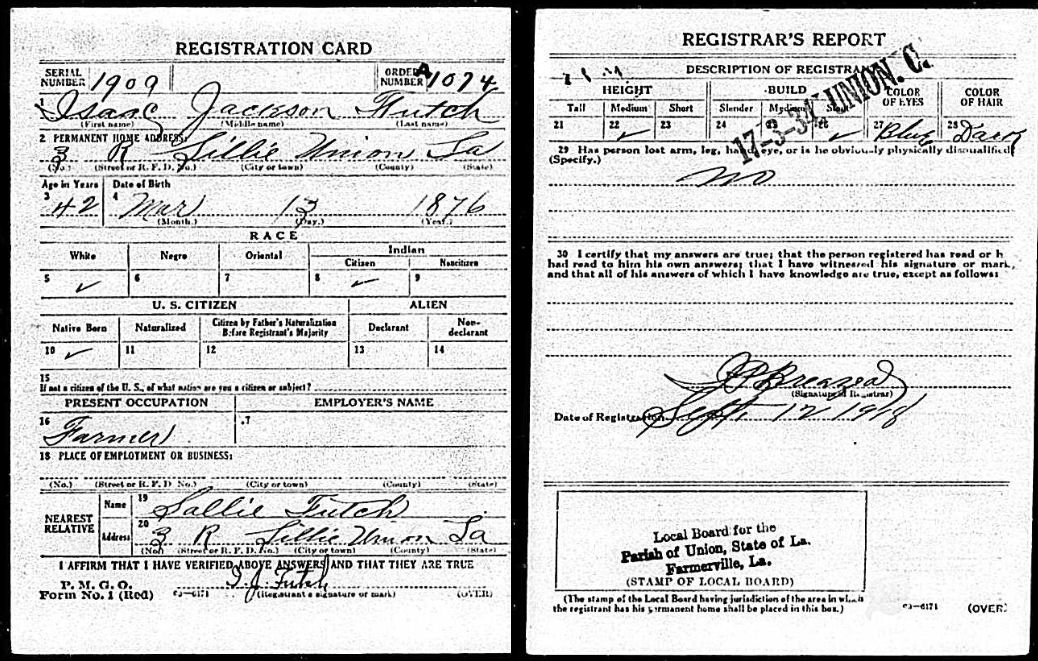 REGISTRATION CARD
SERIAL NUMBER 1909 ORDER NUMBER A1074
1 Isaac Jackson Futch
(First name) (Middle name) (Last name)
2 PERMANENT HOME ADDRESS:
3 R Lillie Union La
(No.) (Street or R. F. D. No.) (City or town) (County) (State)
Age in Years Date of Birth
3 42 4 Mar 13 1876
(Month.) (Day.) (Year.)
RACE
White Negro Oriental Indian
Citizen Noncitizen
5 ✓ 6 7 8 ✓ 9
U. S. CITIZEN ALIEN
Native Born Naturalized Citizen by Father's Naturalization Before Registrant's Majority Declarant Non-declarant
10 ✓ 11 12 13 14
15
If not a citizen of the U. S., of what nation are you a citizen or subject?
PRESENT OCCUPATION EMPLOYER'S NAME
16 Farmer .7
18 PLACE OF EMPLOYMENT OR BUSINESS:
(No.) (Street or R. F. D. No.) (City or town) (County) (State)
NEAREST RELATIVE Name 19 Sallie Futch
Address 20 3 R Lillie Union La
(No.) (Street or R. F. D. No.) (City or town) (County) (State)
I AFFIRM THAT I HAVE VERIFIED ABOVE ANSWERS AND THAT THEY ARE TRUE
P. M. G. O.
Form No. 1 (Red) 03—6171 I. J. Futch
(Registrant's signature or mark) (OVER)
REGISTRAR'S REPORT
DESCRIPTION OF REGISTRAN
17-3-34 UNION. C.
HEIGHT BUILD COLOR OF EYES COLOR OF HAIR
Tall Medium Short Slender Medium Stout
21 22 ✓ 23 24 25 26 ✓ 27 Blue 28 Dark
29 Has person lost arm, leg, hand, eye, or is he obviously physically disqualified
(Specify.)
no
30 I certify that my answers are true; that the person registered has read or h
had read to him his own answers; that I have witnessed his signature or mark,
and that all of his answers of which I have knowledge are true, except as follows:
J P Breazeal
(Signature of Registrar)
Date of Registration Sept. 12, 1918
Local Board for the
Parish of Union, State of La.
Farmerville, La.
(STAMP OF LOCAL BOARD)
(The stamp of the Local Board having jurisdiction of the area in which
the registrant has his permanent home shall be placed in this box.)
03—6171 (OVER)